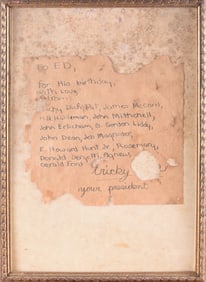 to ED,
for His birthday,
with Love
from:
James McCord,
H.R. Haldeman, John Mitchell,
John Erlichman, G. Gordon Liddy,
John Dean, Jeb Magruder,
E. Howard Hunt Jr., Rosemary,
Donald Segretti,
Gerald Ford
tricky
your president